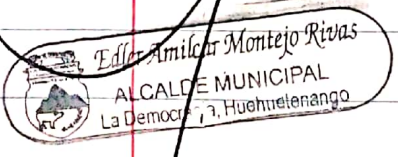 Edler Amilcar Montejo Rivas
ALCALDE MUNICIPAL
La Democracia, Huehuetenango